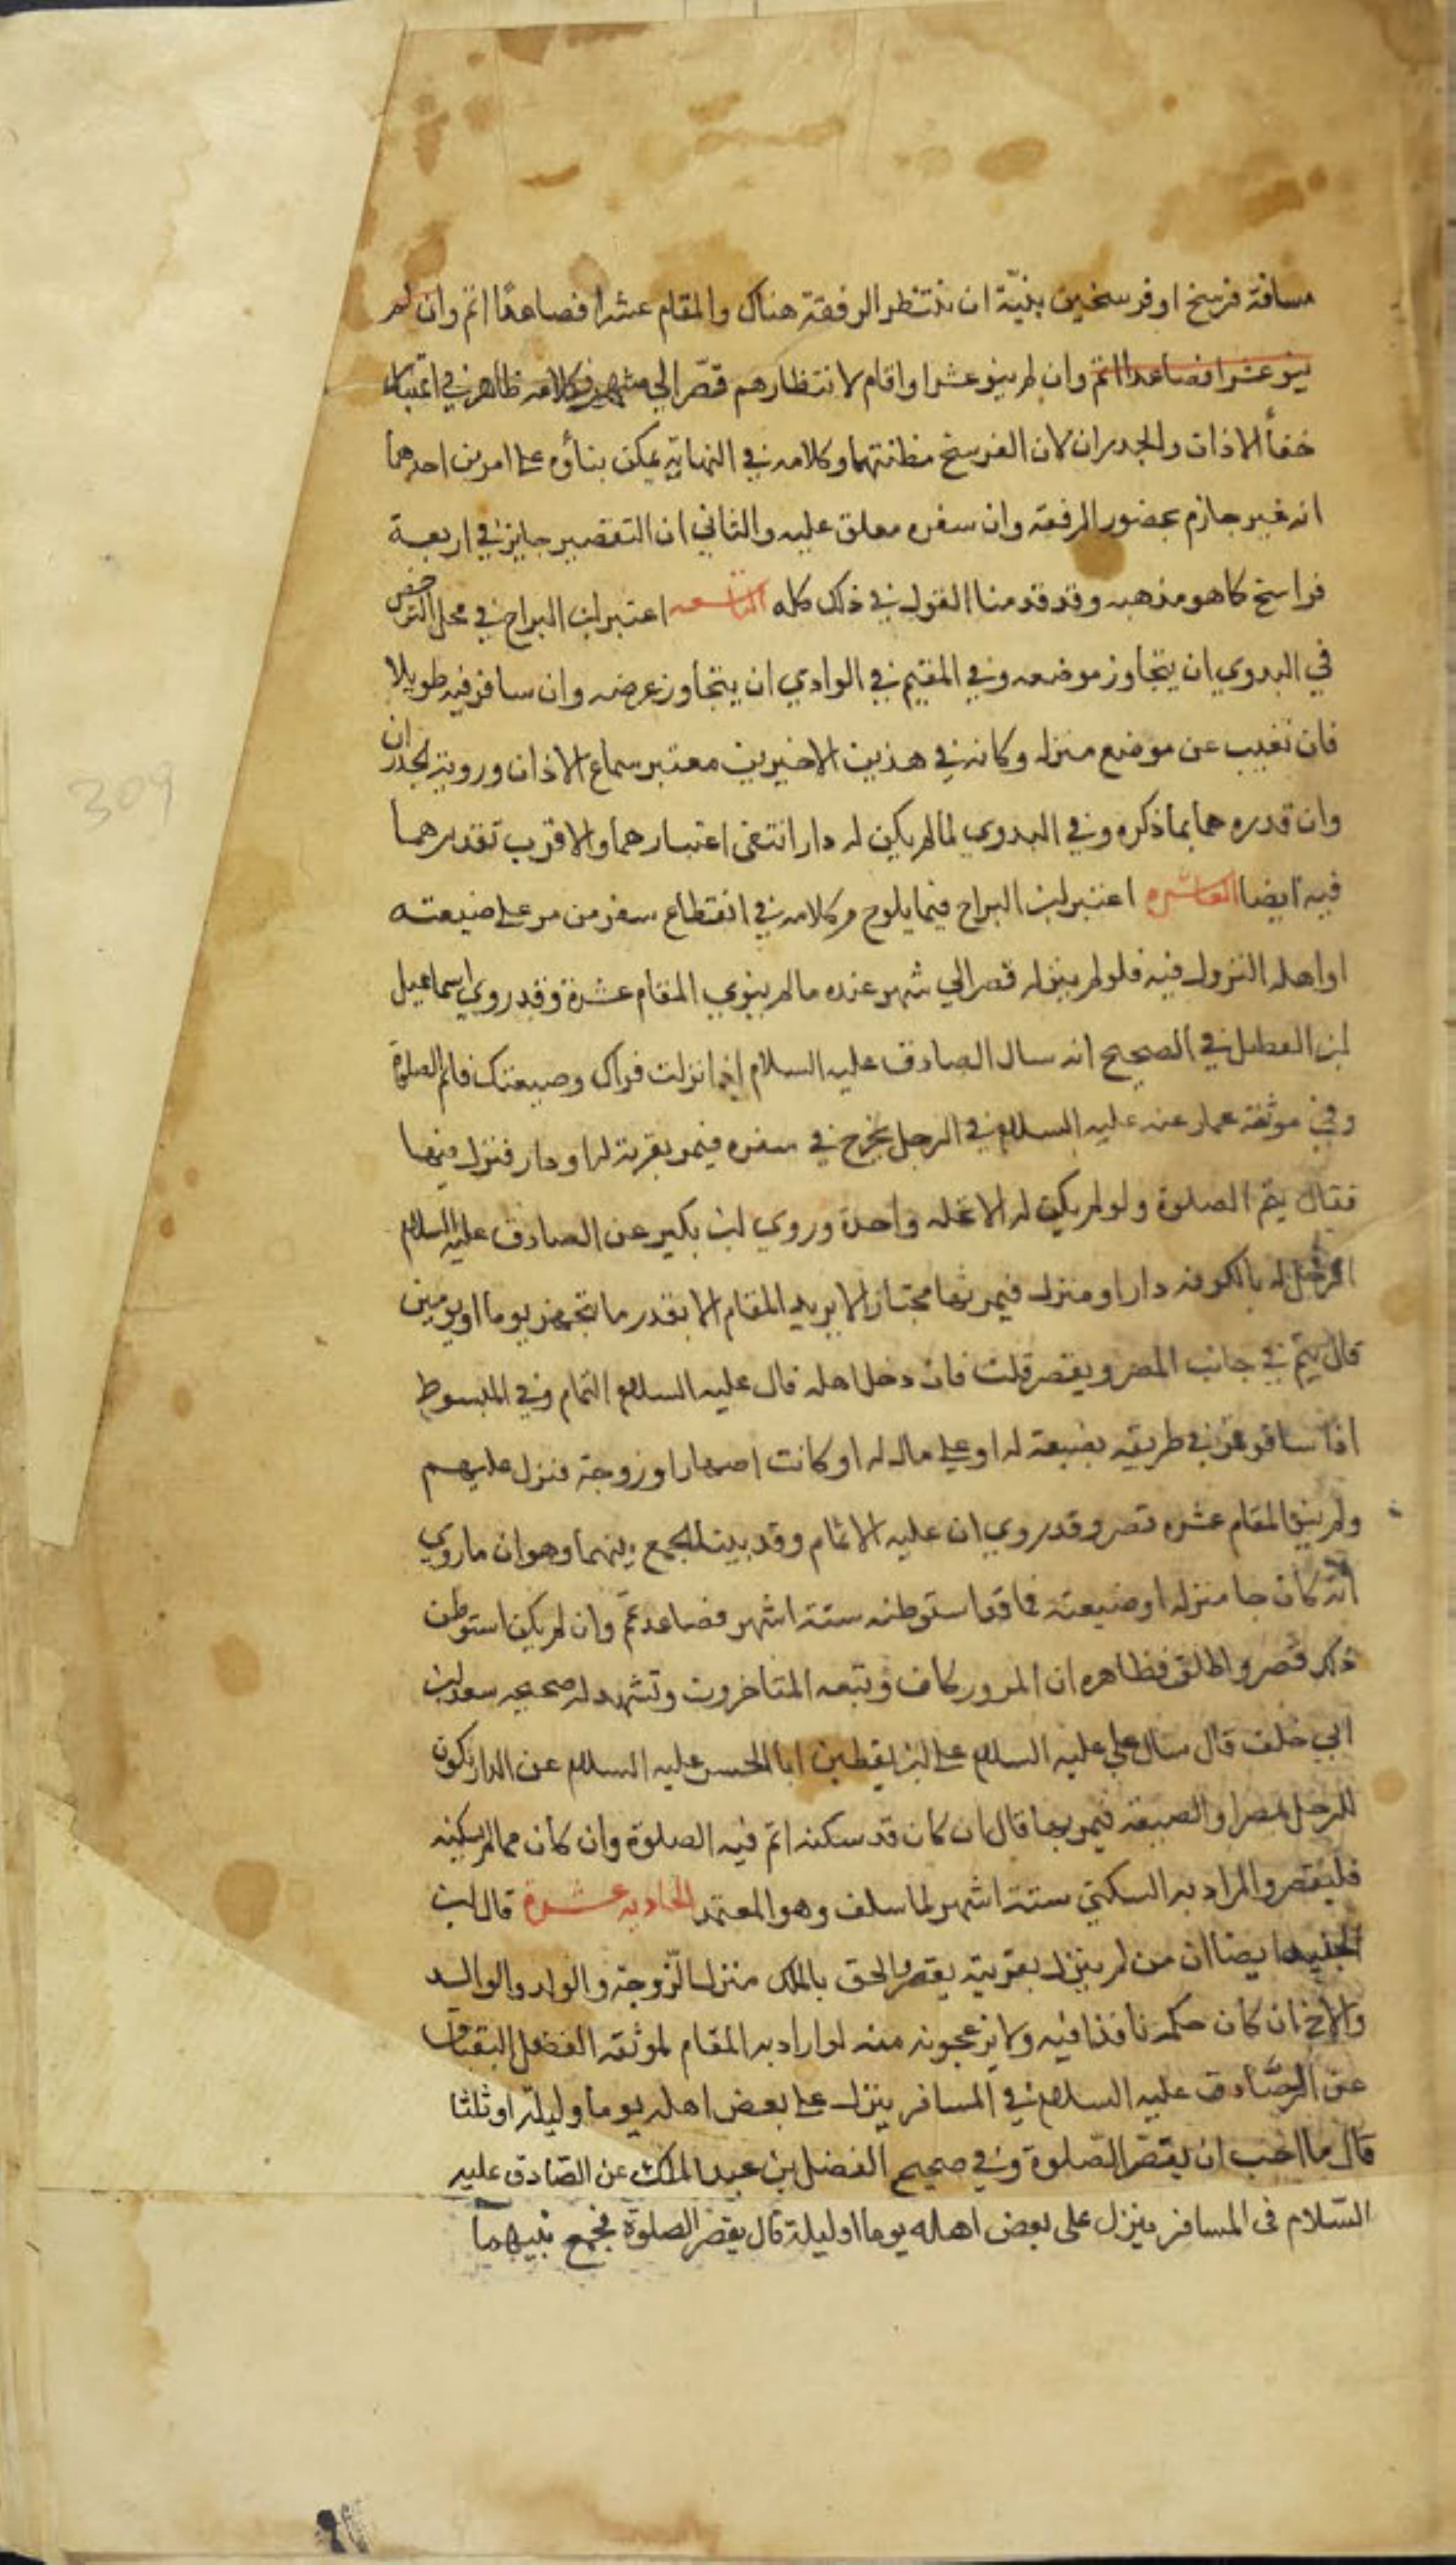 مسافة فرسخ او فرسخين بنيّة ان ينتظر الرفقة هناك والمقام عشرا فصاعدًا اتم وان لم
ينو عشرا فصاعدا اتم وان لم ينو عشرا واقام لانتظارهم قصّر الي شهر وكلامه ظاهر في اعتبار
خفأ الاذان والجدران لان الفرسخ مظنتهما وكلامه في النهاية يمكن بناؤه علي امرين احدهما
انه غير جازم بحضور الرفقه وان سفره معلق عليه والثاني ان التقصير جايز في اربعة
فراسخ كما هو مذهبه وقد قدمنا القول في ذلك كله التاسعه اعتبر ابن البراج في محل الترخص
في البدوي ان يتجاوز موضعه وفي المقيم في الوادي ان يتجاوز عرضه وان سافر فيه طويلا
فان تغيب عن موضع منزله وكانه في هذين الاخيرين معتبر سماع الاذان وروية الجدران
وان قدره هما بما ذكره وفي البدوي لما لم يكن له دار انتفي اعتبارهما والاقرب تقديرهما
فيه ايضا العاشره اعتبر ابن البراج فيما يلوح من كلامه في انقطاع سفر من مر علي ضيعته
او اهله النزول فيه فلو لم ينزله قصر الي شهر عنده ما لم ينوي المقام عشرة وقد روي اسماعيل
ابن الفضل في الصحيح انه سال الصادق عليه السلام اذا نزلت قراك وضيعتك فاتم الصلوة
وفي موثقة عمار عنه عليه السلام في الرجل يخرج في سفره فيمر بقرية له او دار فنزل فيها
فقال يتم الصلوة ولو لم يكن له الا نخله واحدة وروي ابن بكير عن الصادق عليه السلام
الرجل له بالكوفه دار او منزل فيمر بها مجتازا لا يريد المقام الا بقدر ما يتجهز يوما او يومين
قال يتم في جانب المصر ويقصر قلت فان دخل اهله قال عليه السلام التمام وفي المبسوط
اذا سافر فمر في طريقه بضيعة له او علي مال له او كانت اصهارا او زوجة فنزل عليهم
ولم ينو المقام عشره قصر وقد روي ان عليه الاتمام وقد بينا الجمع بينهما وهو ان ما روي
انه كان بها منزله او ضيعته مما قد استوطنه ستة اشهر فصاعدا تم وان لم يكن استوطن
ذلك قصر واطلق فظاهره ان المرور كاف وتبعه المتاخرون وتشهد له صحيحه سعد ابن
ابي خلف قال سال علي عليه السلام علي ابن يقطين ابا الحسن عليه السلام عن الدار تكون
للرجل بمصر او الضيعة فيمر بها قال ان كان قد سكنه اتم فيه الصلوة وان كان مما لم يسكنه
فليقصر والمراد به السكني ستة اشهر لما سلف وهو المعتمد الحاديه عشرة قال ابن
الجنيد ايضا ان من لم ينزل بقريته يقصر والحق بالملك منزل الزّوجة والولد والوالد
والاخ ان كان حكمه نافذا فيه ولا يزعجونه منه لو اراد به المقام لموثقه الفضل البقباق
عن الصّادق عليه السلام في المسافر ينزل علي بعض اهله يوما وليلة او ثلثا
قال ما احب ان يقصّر الصّلوة وفي صحيح الفضل بن عبد الملك عن الصّادق عليه
السّلام فى المسافر ينزل على بعض اهله يوما او ليلة قال يقصّر الصلوة فجمع بينهما
309